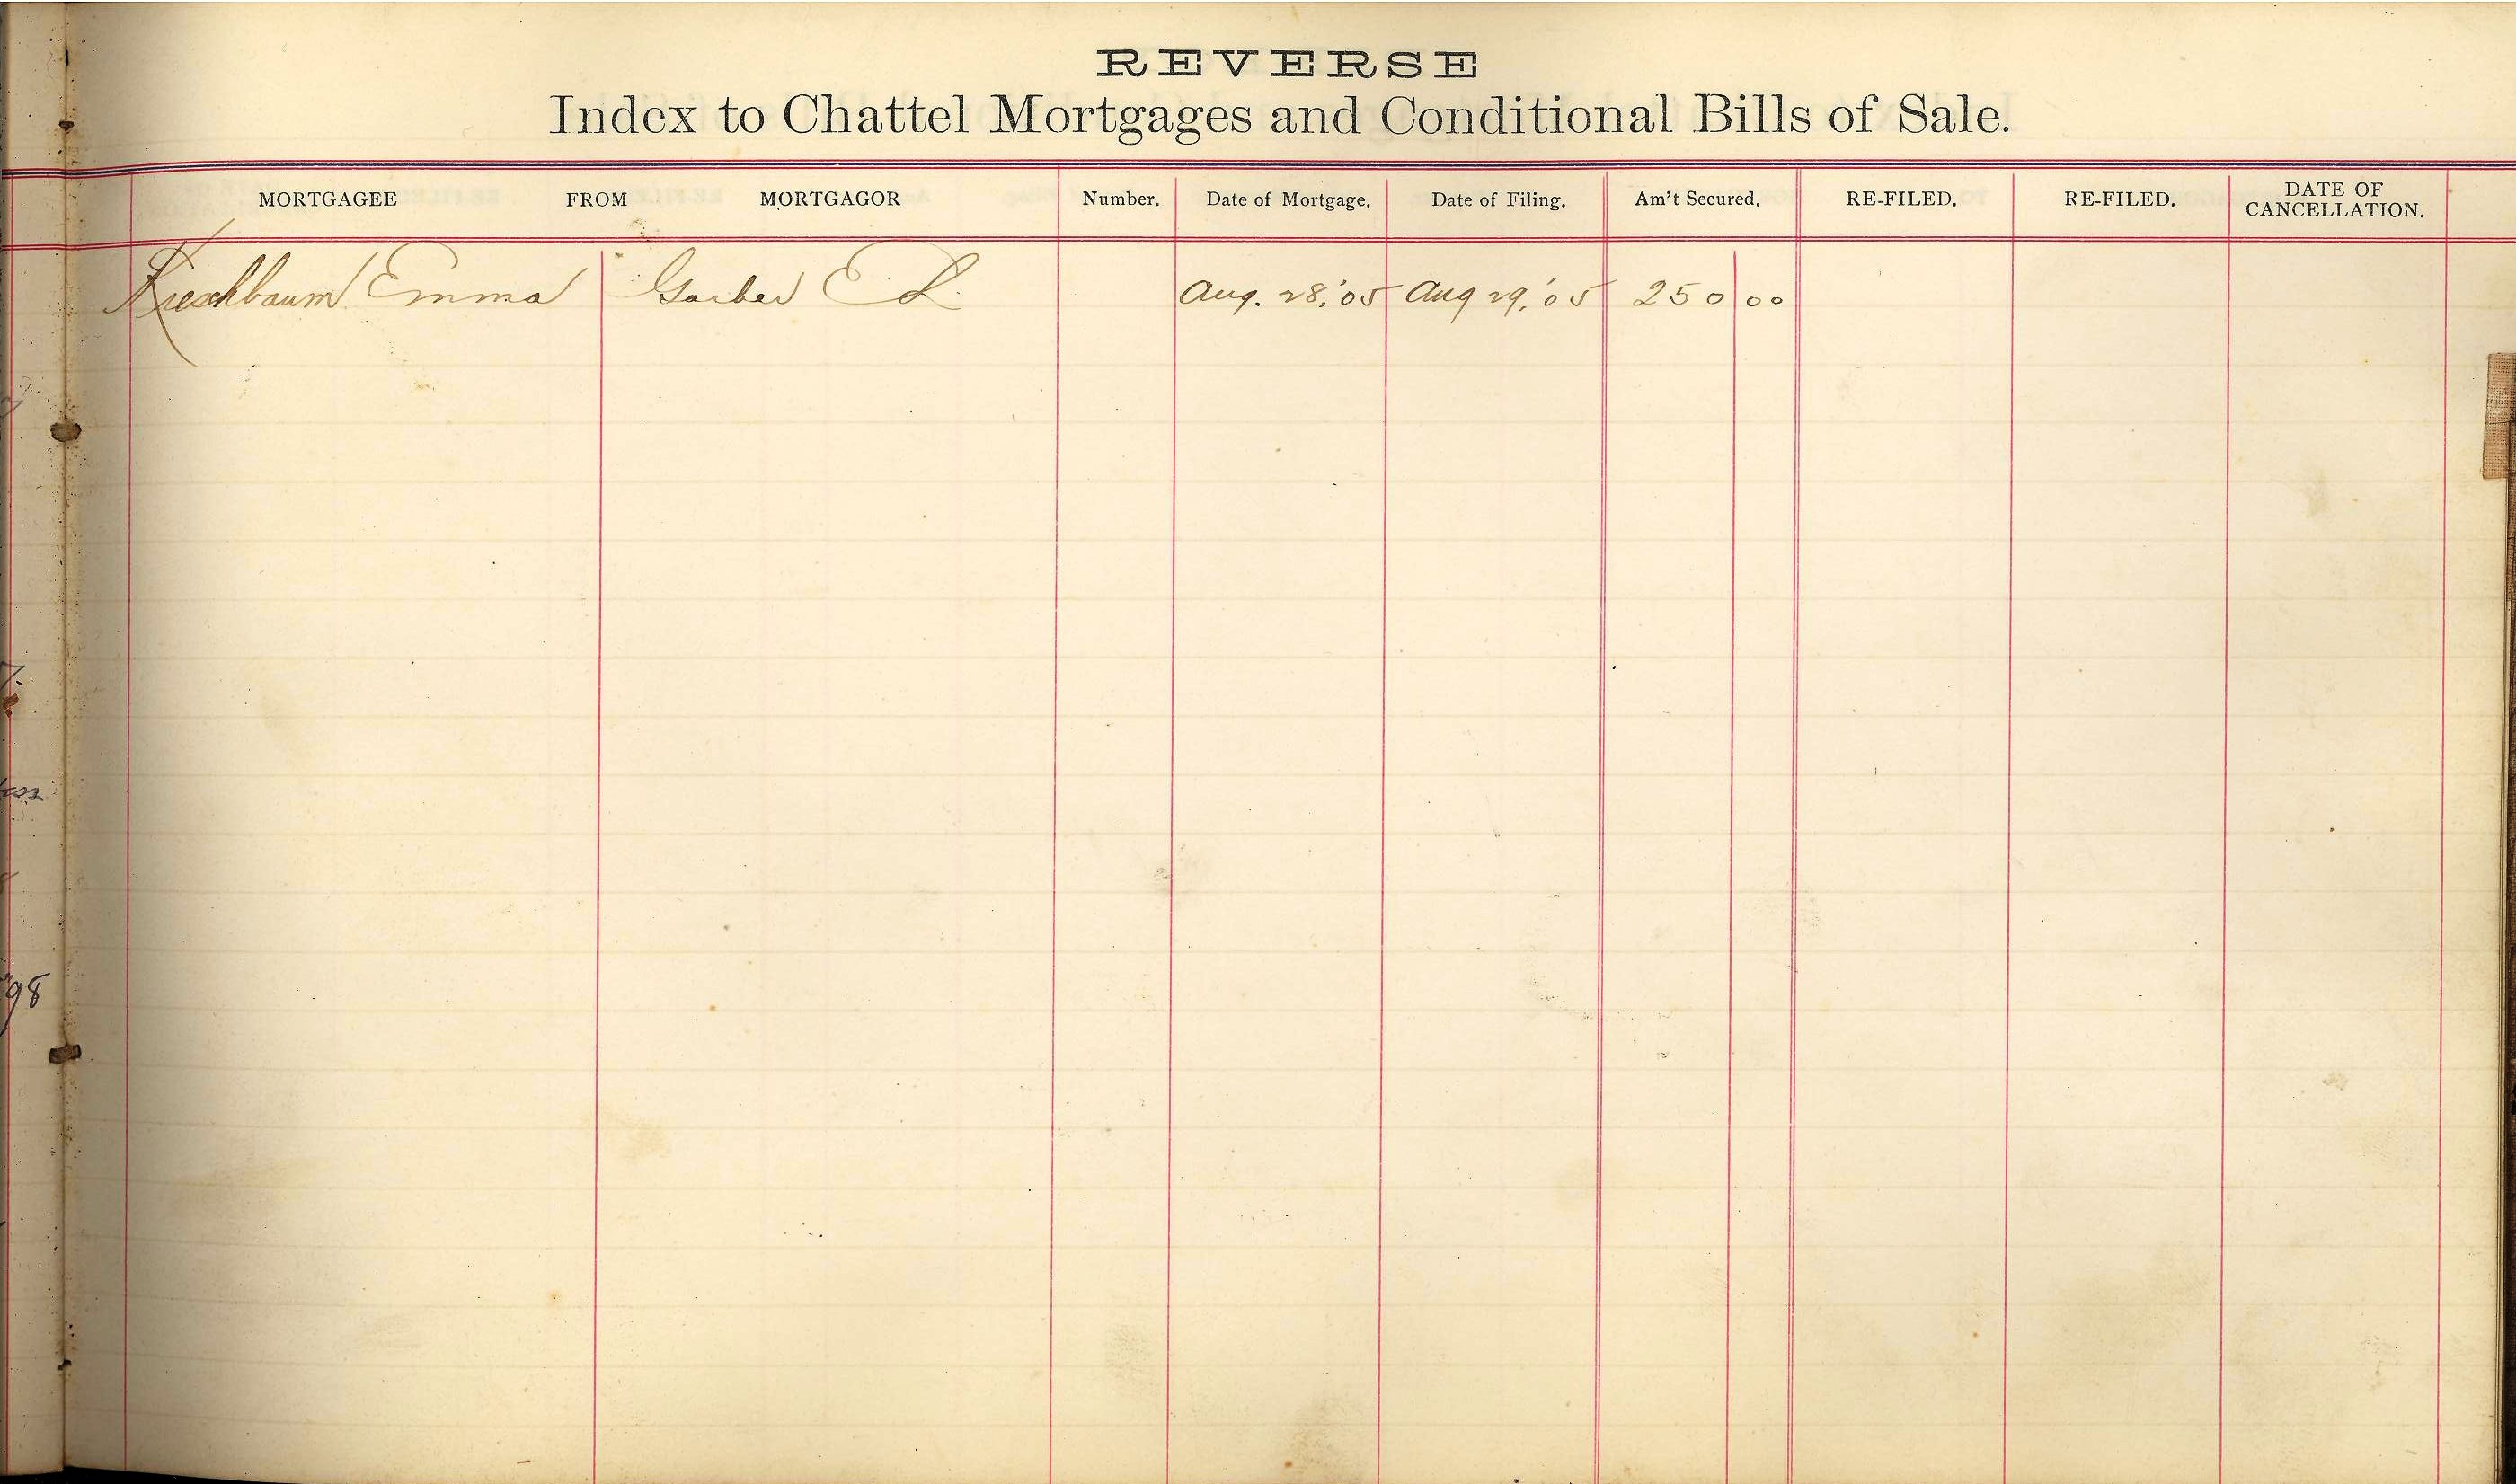 REVERSE
Index to Chattel Mortgages and Conditional Bills of Sale.
MORTGAGEE FROM MORTGAGOR Number. Date of Mortgage. Date of Filing. Am't Secured. RE-FILED. RE-FILED. DATE OF CANCELLATION.
Emma Garber E L. Aug. 28, '05 Aug 29, '05 250 00
98